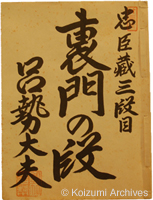 忠臣蔵三段目
裏門の段
呂勢大夫
© Koizumi Archives